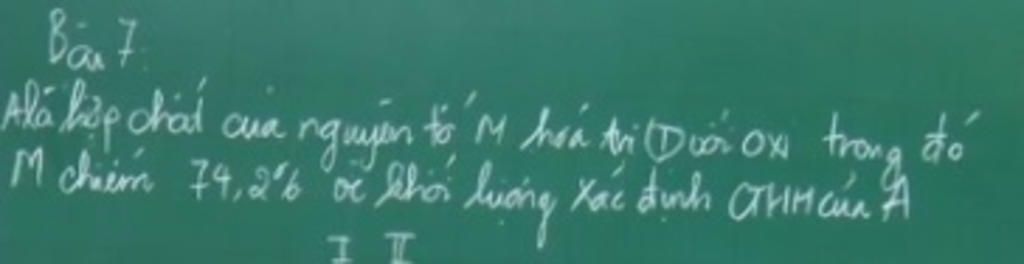 Bài 7
A là hợp chất của nguyên tố M hoá trị (I) với oxi trong đó
M chiếm 74,2% về khối lượng xác định CTHH của A
I II